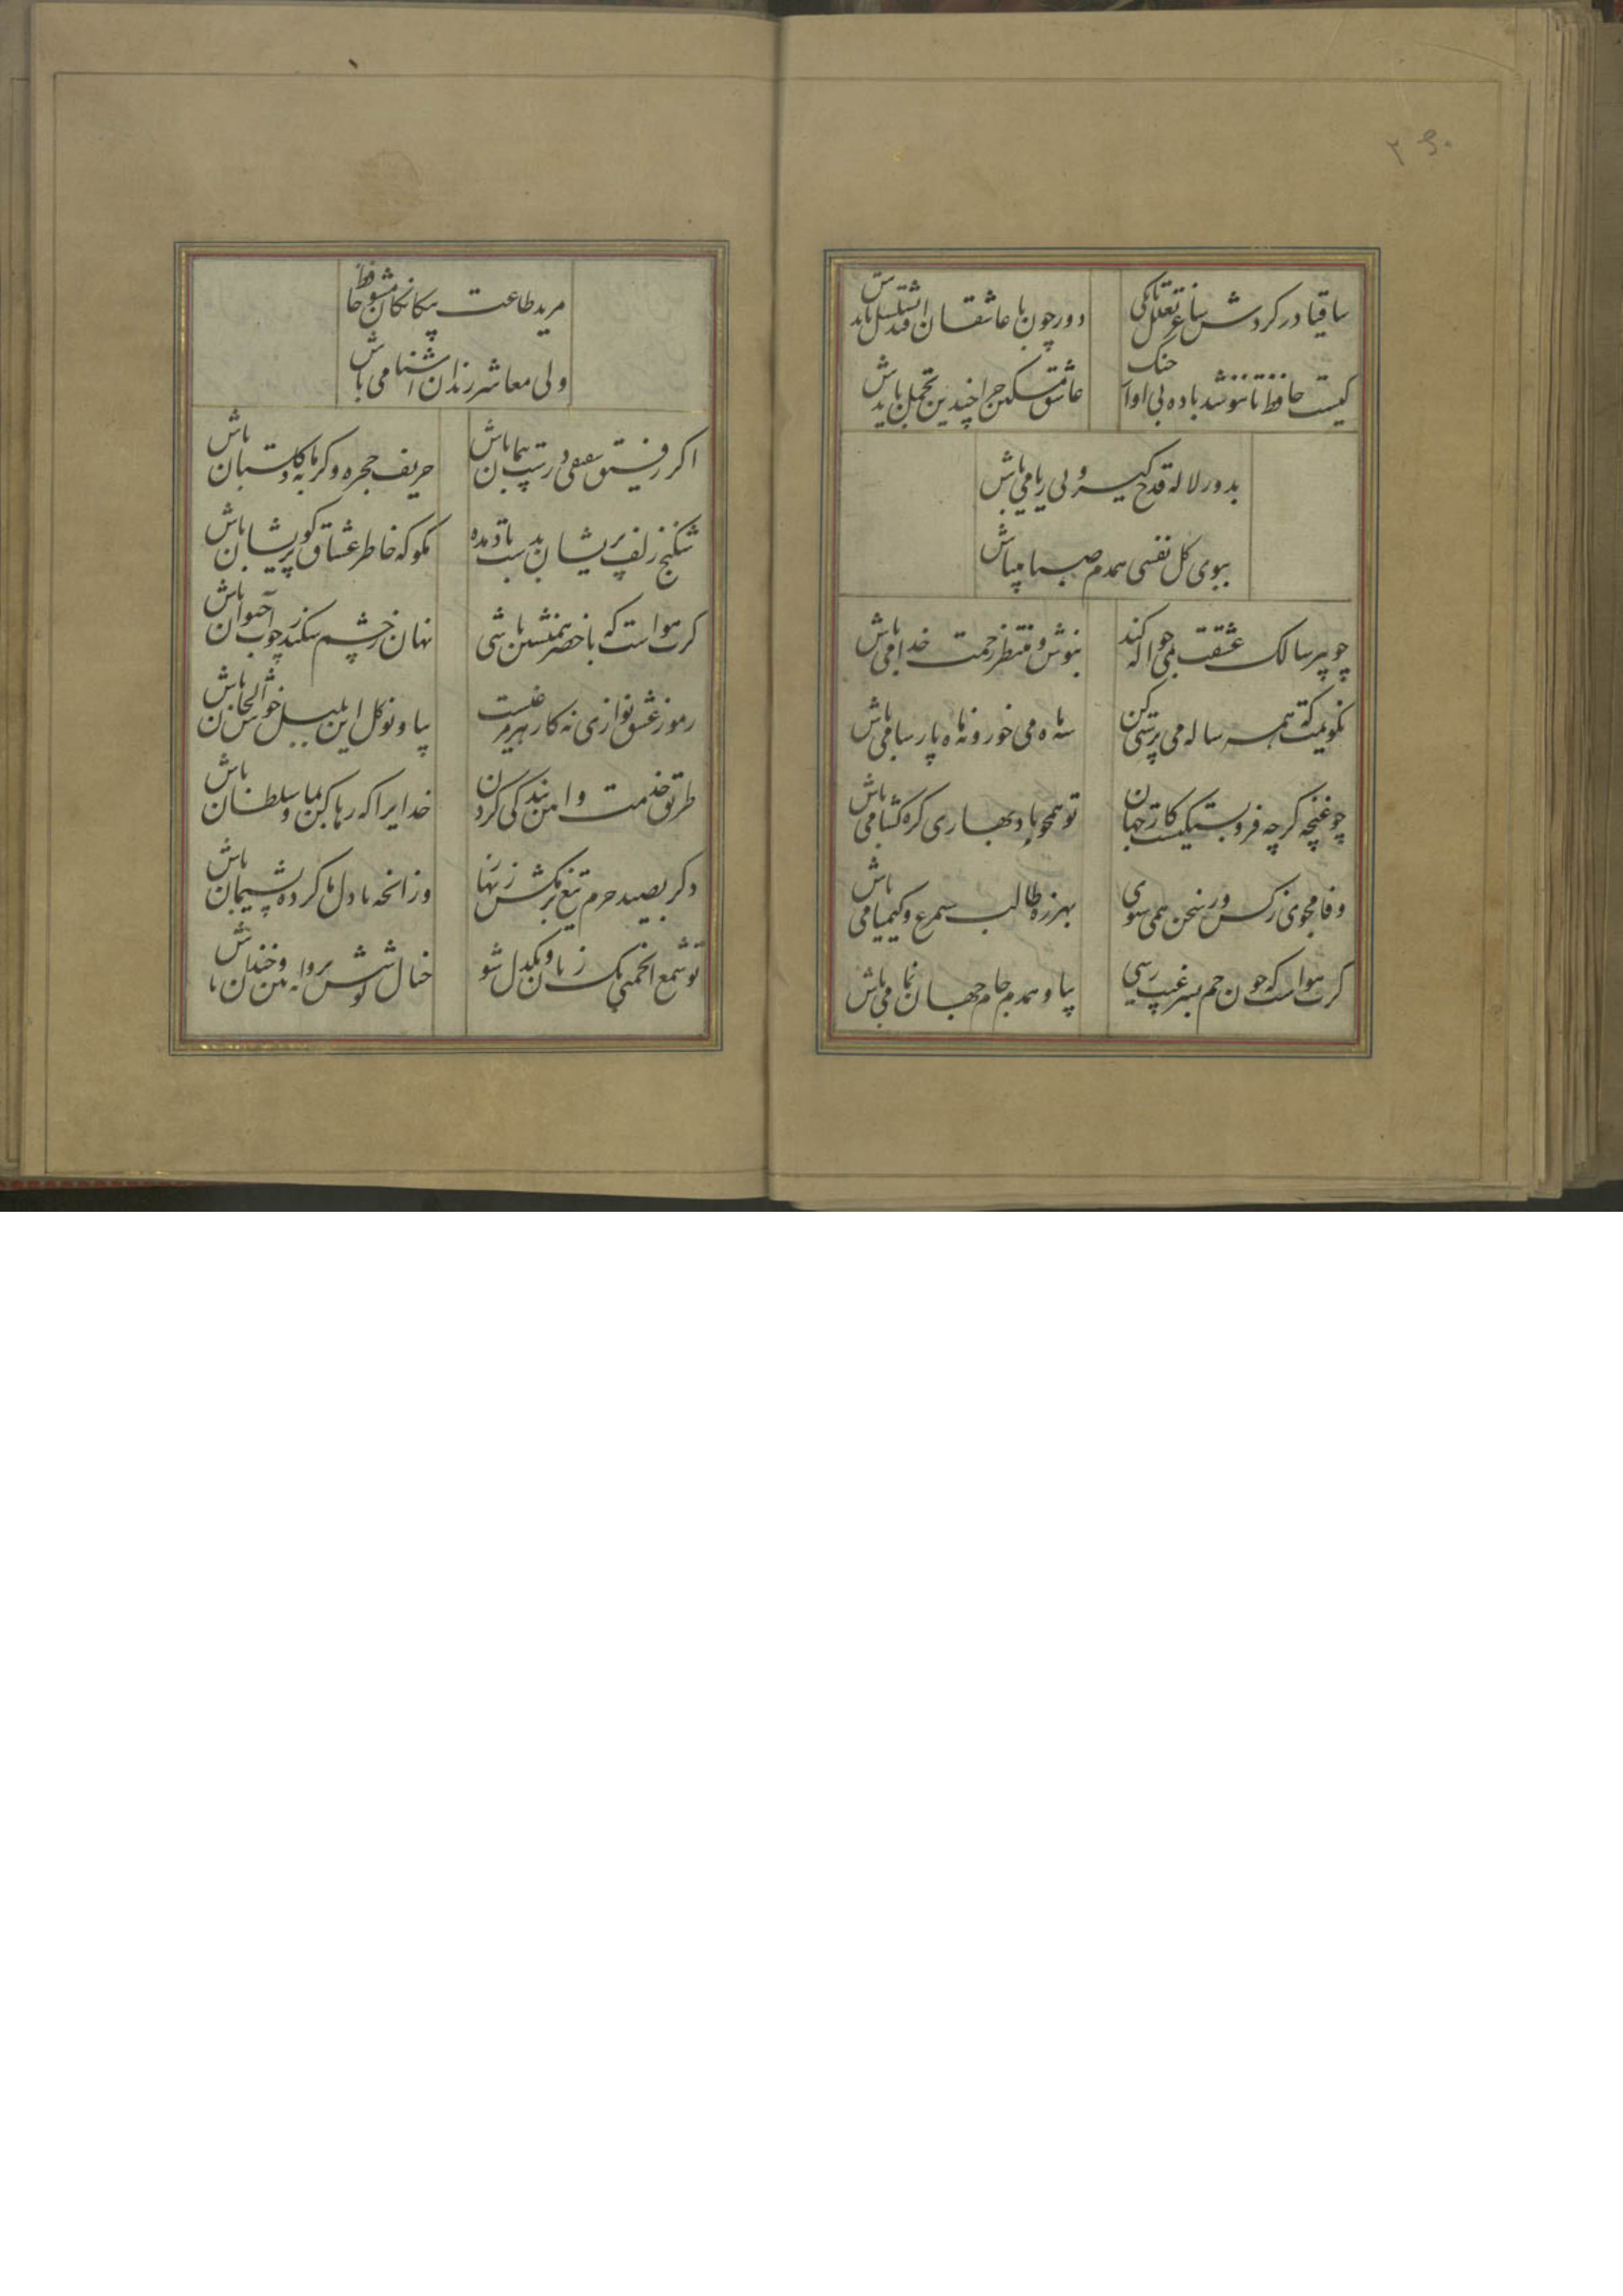 ۲۶۰
ساقیا در کردش ساغر تعلل تا بکی
دور چون با عاشقان افتد تسلسل بایدش
کیست حافظ تا ننوشد باده بی اواز چنک
عاشق مسکین چرا چندین تحمل بایدش
بدور لاله قدح کیر و بی ریا می باش
ببوی کل نفسی همدم صبا میباش
چو پیر سالک عشقت بمی حواله کند
بنوش و منتظر رحمت خدا می باش
نکویمت که همه ساله می پرستی کن
سه ماه می خور و نه ماه پارسا می باش
چو غنچه کرچه فروبستکیست کار جهان
تو همچو باد بهاری کره کشا می باش
وفا مجوی ز کس ور سخن نمی شنوی
بهرزه طالب سیمرغ و کیمیا می باش
کرت هواست که چون جم بسر غیب رسی
بیا و همدم جام جهان نما می باش
مرید طاعت بیکانکان مشو حافظ
ولی معاشر رندان اشنا می باش
اکر رفیق شفیقی درست پیمان باش
حریف حجره و کرمابه و کلستان باش
شکنج زلف پریشان بدست باد مده
مکو که خاطر عشاق کو پریشان باش
کرت هواست که با خضر همنشین باشی
نهان ز چشم سکندر چو آب حیوان باش
رموز عشق نوازی نه کار هر مرغیست
بیا و نوکل این بلبل خوش الحان باش
طریق خدمت و امین بندکی کردن
خدایرا که رها کن بما و سلطان باش
دکر بصید حرم تیغ برمکش زنهار
وز انچه با دل ما کرده پشیمان باش
تو شمع انجمنی یک زبان و یکدل شو
خیال کوشش پروانه بین و خندان باش